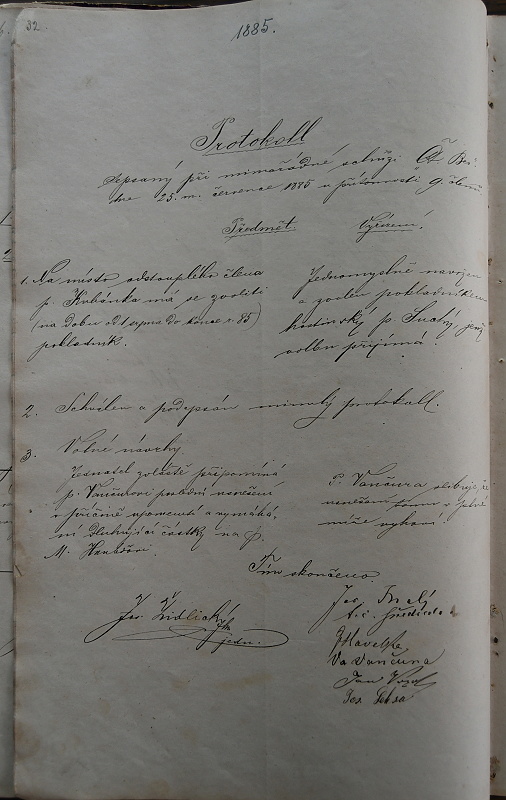 32
1885.
Protokoll
sepsaný při mimořádné schůzi Čt. Be-
dne 25. m. července 1885 u přítomnosti 9. členů
Předmět. Vyřízení.
1. Na místo odstouplého člena
p. Kubánka má se zvoliti
(na dobu od 1 srpna do konce r. 85)
pokladník.
Jednomyslně navržen
a zvolen pokladníkem
hostinský p. Suchý, jenž
volbu přijímá.
2. Schválen a podepsán minulý protokoll.
3. Volné návrhy.
Jednatel zvláště připomíná
p. Vančurovi poslední usnešení
v příčině upomenutí a vymáhá-
ní dlužující částky na p.
M.
P. Vančura slibuje, že
usnešení tomu v plné
míře vyhoví.
Tím skončeno.
Jos. Židlický
jedn.
Jos. Malý
J Havelka
Va Vančura
Jan
Jos.